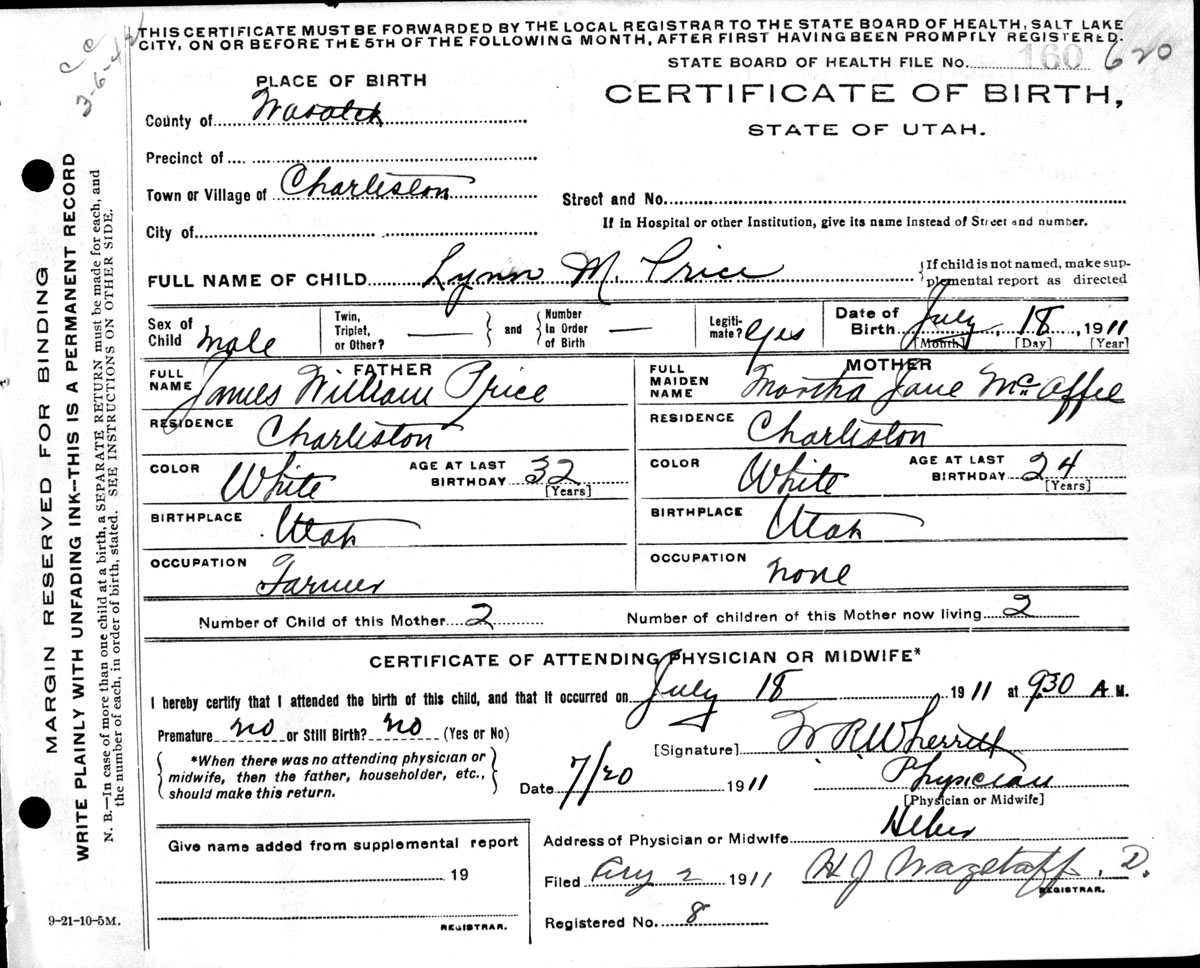 THIS CERTIFICATE MUST BE FORWARDED BY THE LOCAL REGISTRAR TO THE STATE BOARD OF HEALTH, SALT LAKE
CITY, ON OR BEFORE THE 5TH OF THE FOLLOWING MONTH, AFTER FIRST HAVING BEEN PROMPTLY REGISTERED.
STATE BOARD OF HEALTH FILE No. 160 620
cc
3-6-42
PLACE OF BIRTH
CERTIFICATE OF BIRTH,
STATE OF UTAH.
County of Wasatch
Precinct of
Town or Village of Charleston
Street and No.
City of
If in Hospital or other Institution, give its name instead of Street and number.
FULL NAME OF CHILD Lynn M. Price
If child is not named, make sup-
plemental report as directed
Sex of Child Male
Twin, Triplet, or Other? —
and
Number in Order of Birth —
Legiti-mate? Yes
Date of Birth July 18, 1911
[Month] [Day] [Year]
FATHER
FULL NAME James William Price
RESIDENCE Charleston
COLOR White AGE AT LAST BIRTHDAY 32
[Years]
BIRTHPLACE Utah
OCCUPATION Farmer
MOTHER
FULL MAIDEN NAME Martha Jane McAffee
RESIDENCE Charleston
COLOR White AGE AT LAST BIRTHDAY 24
[Years]
BIRTHPLACE Utah
OCCUPATION none
Number of Child of this Mother 2 Number of children of this Mother now living 2
CERTIFICATE OF ATTENDING PHYSICIAN OR MIDWIFE*
I hereby certify that I attended the birth of this child, and that it occurred on July 18 1911 at 9:30 A M.
Premature no or Still Birth? no (Yes or No)
*When there was no attending physician or
midwife, then the father, householder, etc.,
should make this return.
[Signature] W R Wherritt
Date 7/20 1911 Physician
[Physician or Midwife]
Address of Physician or Midwife Heber
Give name added from supplemental report
19
REGISTRAR.
Filed Aug 2 1911 H J Wagstaff. D.
REGISTRAR.
Registered No. 8
9-21-10-5M.
MARGIN RESERVED FOR BINDING
WRITE PLAINLY WITH UNFADING INK—THIS IS A PERMANENT RECORD
N. B.—In case of more than one child at a birth, a SEPARATE RETURN must be made for each, and
the number of each, in order of birth, stated. SEE INSTRUCTIONS ON OTHER SIDE.